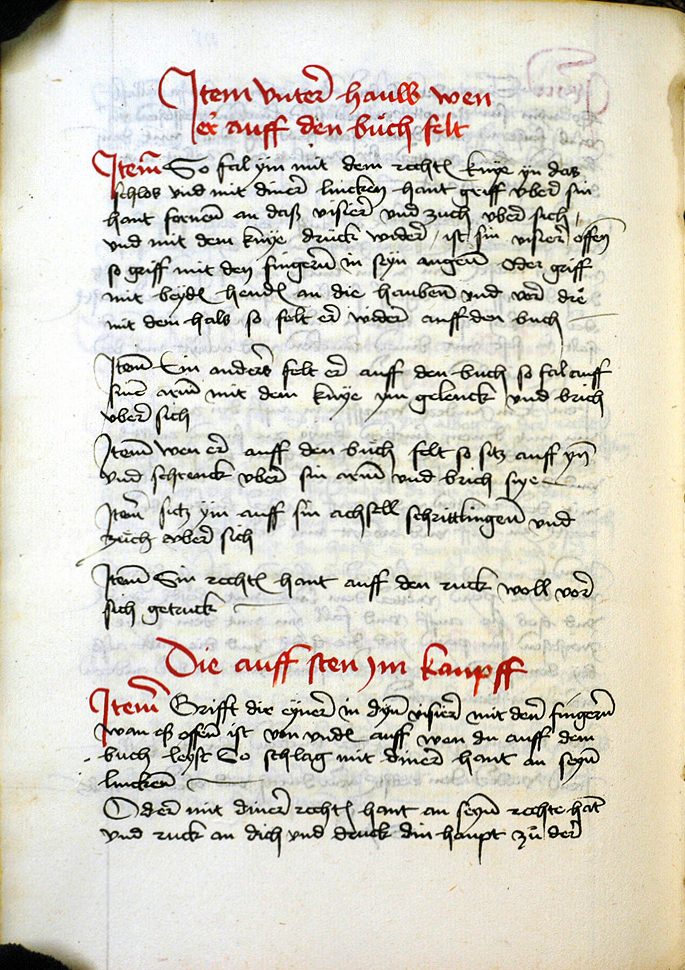 Item vnter haw̄b wen
er auff den bůch felt
Item So fal ym mit dem rechtē knÿe yn das
schlos vnd mit diner lincken hant griff vber sin
hant fornen an daß visier vnd zuch vber sich /
vnd mit dem knye drück wider / ist sin visier offen
so griff mit den fingern in sÿn augen Oder griff
mit beydē hendē an die hauben vnd vor dre
mit dem hals so felt er wider auff den buch
Item Ein anders felt er auff den buch so fal auff
sinē arm mit dem knÿe ym gelenck vnd brich
vber sich
Item wen er auff den bůch felt so sitz auff yn
vnd schrenck vber sin arm vnd brich sye
Item sitz ym auff sin achsell schrittlingen vnd
zuch vber sich
Item Sin rechtē hant auff den ruck woll vor
sich getruck
Die auff sten Jm kampff
Item Grifft dir eyner in dyn visier mit den fingern
wan eß offen ist von vndē auff wen du auff dem
buch leyst So schlag mit diner hant an seyn
lincken
Oder mit diner rechtē hant an seyn rechte hāt
vnd ruck an dich vnd druck din haupt zů der